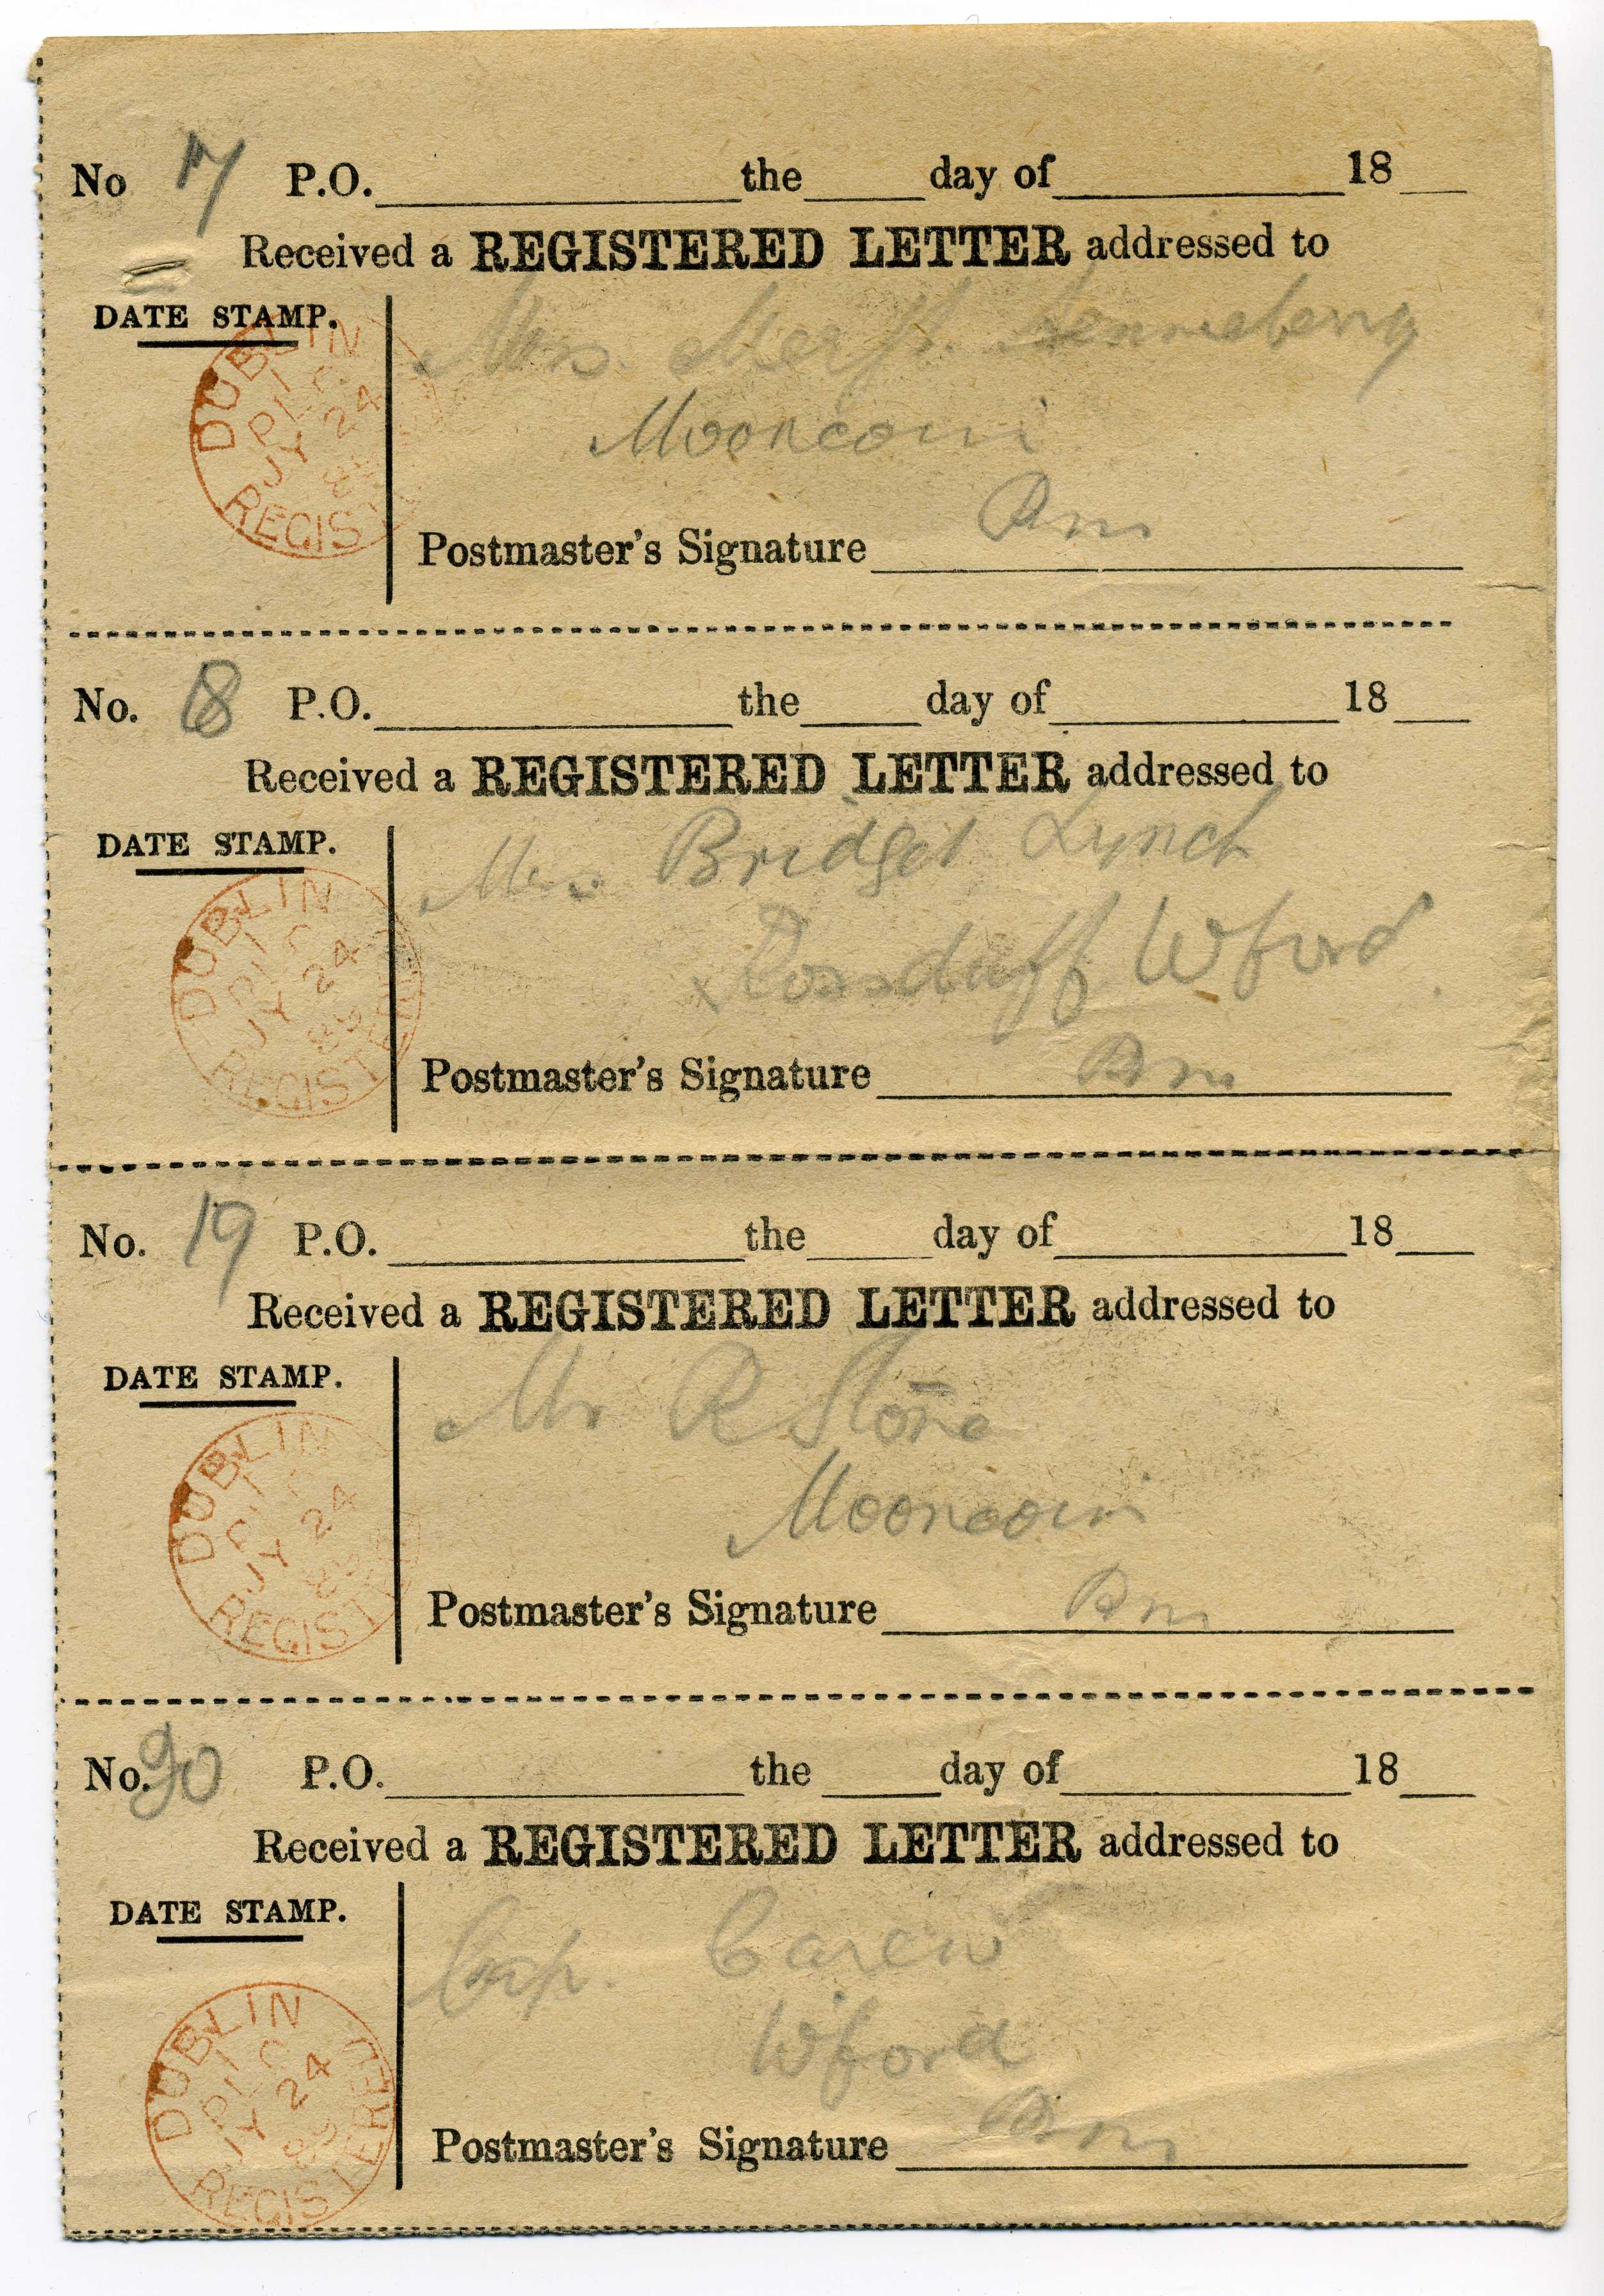 No 17 P.O. the day of 18
Received a REGISTERED LETTER addressed to
DATE STAMP.
DUBLIN
JY 24
REGIST
Mrs.
Mooncoin
Postmaster's Signature Pm
No. 18 P.O. the day of 18
Received a REGISTERED LETTER addressed to
DATE STAMP.
DUBLIN
JY 24
89
REGISTERED
Bridget Lynch
Rossduff Wford
Postmaster's Signature Pm
No. 19 P.O. the day of 18
Received a REGISTERED LETTER addressed to
DATE STAMP.
DUBLIN
JY 24
REGIST
Mr R Stone
Mooncoin
Postmaster's Signature Pm
No. 20 P.O. the day of 18
Received a REGISTERED LETTER addressed to
DATE STAMP.
DUBLIN
JY 24
REGISTERED
Carew
Wford
Postmaster's Signature Pm